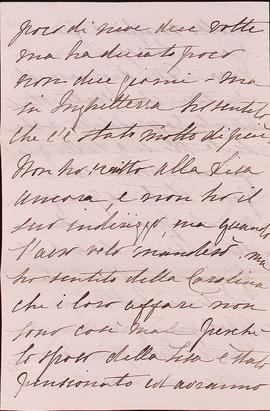 poco di neve due volte
ma ha durato poco
non due giorni - ma
in Inghilterra ho sentito
che c'è stato molto di più
Non ho scritto alla Lisa
ancora, e non ho il
suo indirizzo, ma quando
l'avrò velo manderò, ma
ho sentito della Carolina
che i loro affare non
sono così male perchè
lo sposo della Lisa è stato
pensionato ed avranno